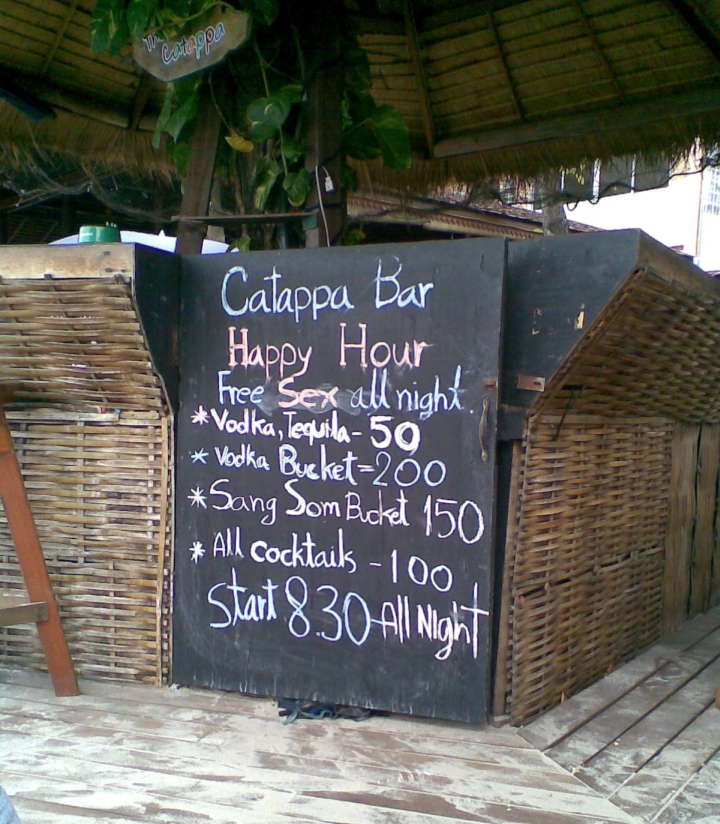 The
Catappa
Catappa Bar
Happy Hour
Free Sex all night.
* Vodka, Tequila - 50
* Vodka Bucket = 200
* Sang Som Bucket 150
* All cocktails - 100
Start 8.30 - All Night